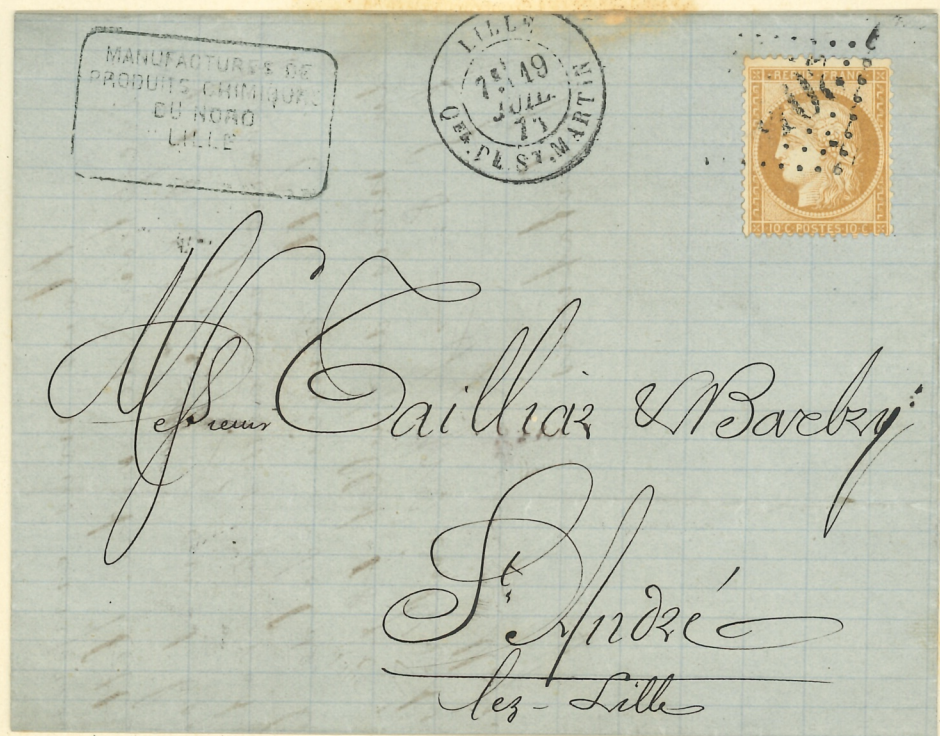 MANUFACTURES DE
PRODUITS CHIMIQUES
DU NORD
LILLE
LILLE
19
JUIL.
QER. PL. ST. MARTIN
REPUB. FRANC.
10 C. POSTES 10 C.
Messieurs Tailliez & Barbry
St. André
lez-Lille